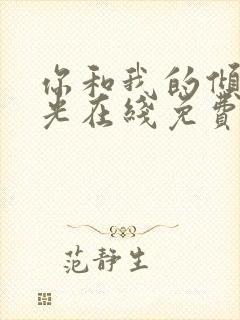 你和我的倾
光在线免费
范静生